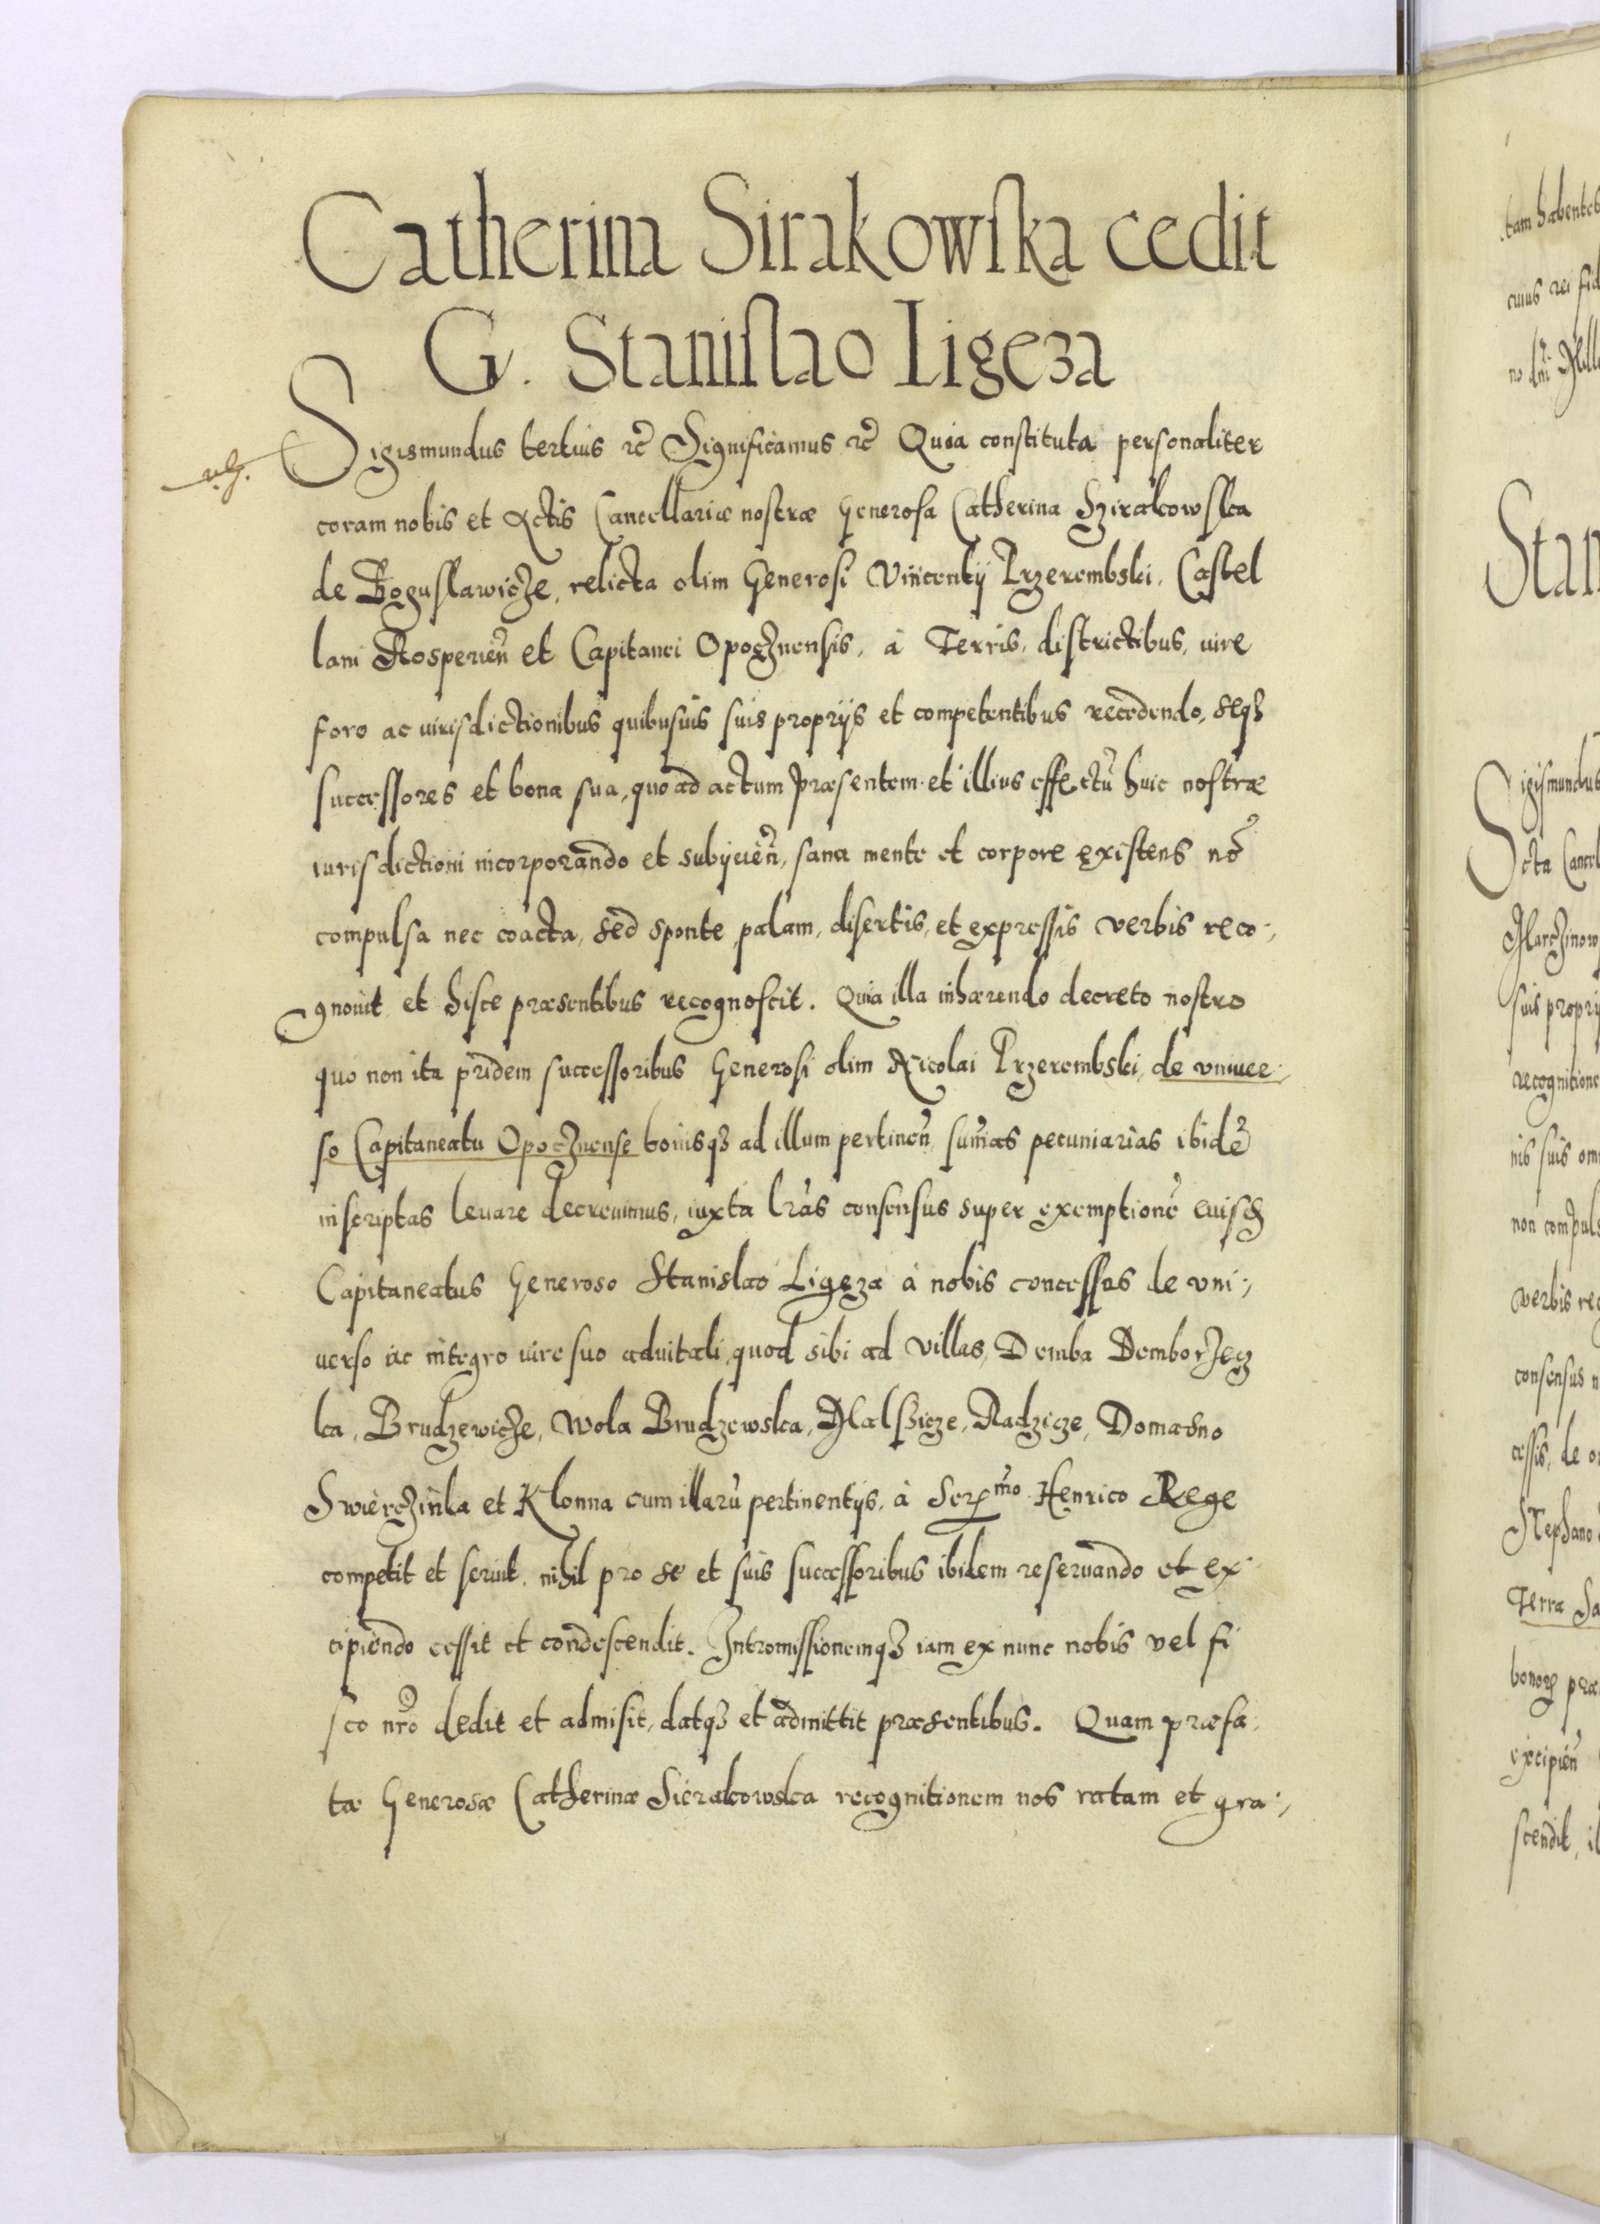 Catherina Sirakowſka cedit
G. Staniſlao Ligęza
Sigismundus tertius &c̃ Significamus &c̃ Quia constituta personaliter
coram nobis et Actis Cancellariæ nostræ Generosa Catherina Szirakowska
de Boguslawicze, relicta olim Generosi Vincentij Przerembski, Castel
lani Rosperien̄ et Capitanei Opocznensis, à Terris, districtibus, iure
foro ac iurisdictionibus quibusuis suis proprijs et competentibus recedendo, seqз
successores et bona sua, quo ad actum præsentem et illius effectū huic nostræ
iurisdictioni incorporando et subijcien̄, sana mente et corpore existens nō
compulsa nec coacta, sed sponte palam, disertis, et expressis verbis reco-,
gnouit et hisce præsentibus recognoscit. Quia illa inhærendo decreto nostro
quo non ita pridem successoribus Generosi olim Nicolai Przerembski, de vniuer-,
so Capitaneatu Opocznense bonisqз ad illum pertinen̄ sum̄as pecuniarias ibidē
inscriptas leuare decreuimus, iuxta lr̄as consensus super exemptionē euisd
Capitaneatus Generoso Stanislao Ligęza à nobis concessas de vni-,
uerso ac integro iure suo aduitali, quod sibi ad villas, Demba Demborzecz
ka, Brudzewicze, Wola Brudzewska, Radzicze, Domasno
Swierczinka et Klonna cum illarū pertinentijs, à Ser^mo Henrico Rege
competit et seruit, nihil pro se et suis successoribus ibidem reseruando et ex-
cipiendo cessit et condescendit. Intromissionemqз iam ex nunc nobis vel fi
sco nr̄o dedit et admisit, datqз et admittit præsentibus. Quam præfa-
tæ Generosæ Catherinæ Sierakowska recognitionem nos ratam et gra-,
tam habentes
cuius rei fid
Stan
Sigismundus
Acta Cancel
suis proprij
recognitione
nis suis om
non compuls
verbis rec
consensus n
cessis, de
Stephano
Terra Sa
excipien̄
scendit, i